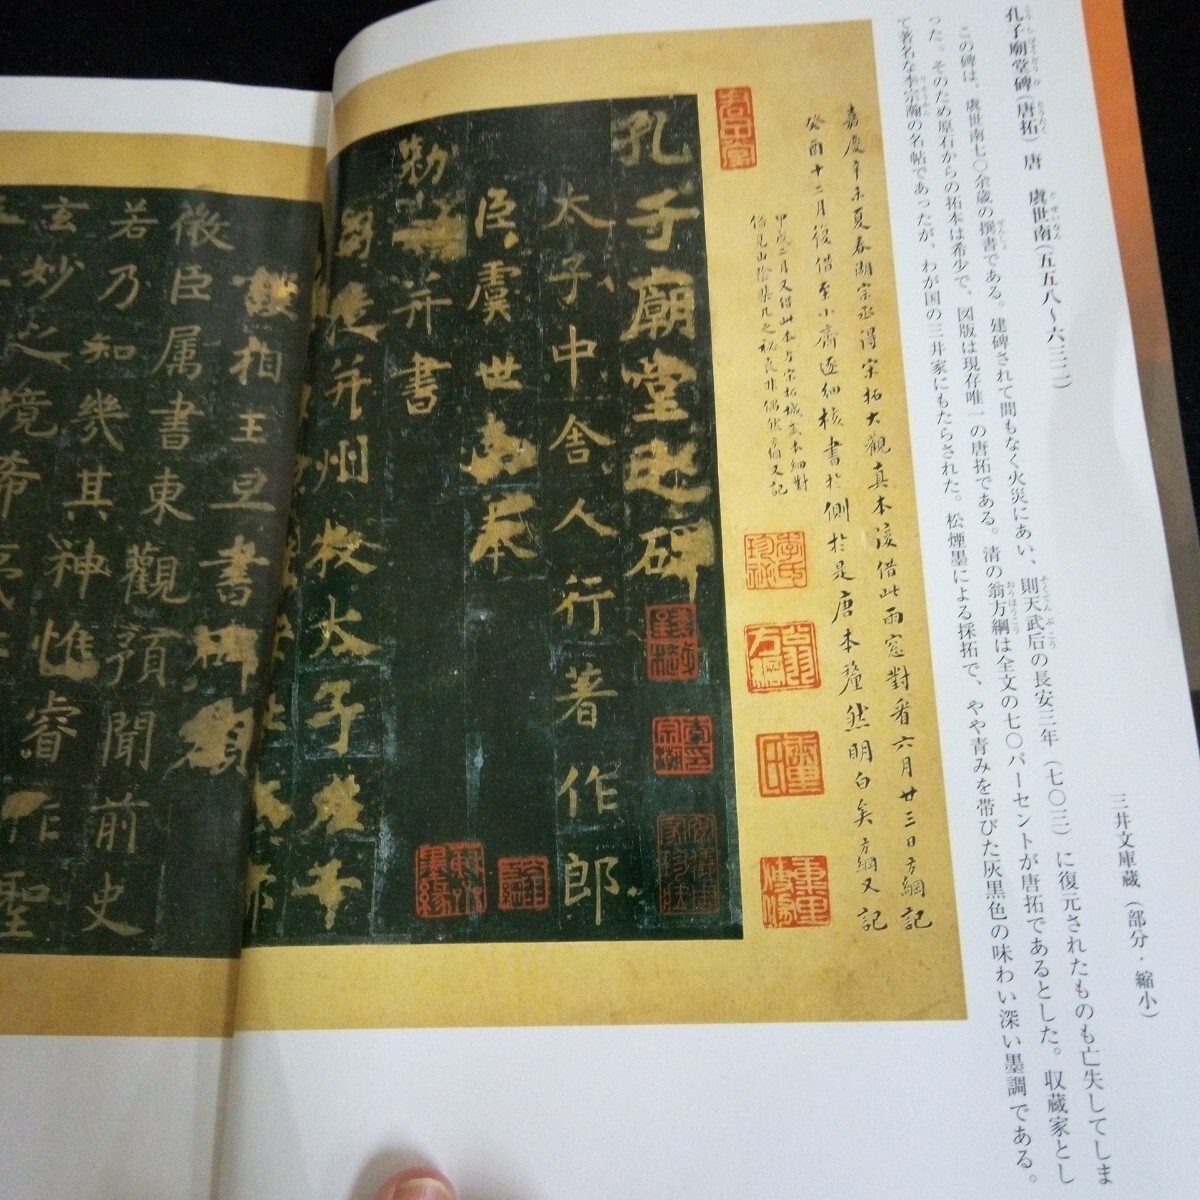 孔子廟堂碑（唐拓）　唐　虞世南（五五八〜六三八）
三井文庫蔵（部分・縮小）
この碑は、虞世南七〇余歳の撰書である。建碑されて間もなく火災にあい、則天武后の長安三年（七〇三）に復元されたものも亡失してしま
った。そのため原石からの拓本は希少で、図版は現存唯一の唐拓である。清の翁方綱は全文の七〇パーセントが唐拓であるとした。収蔵家とし
て著名な李宗瀚の名帖であったが、わが国の三井家にもたらされた。松煙墨による採拓で、やや青みを帯びた灰黒色の味わい深い墨調である。
嘉慶辛未夏春湖宗丞得宋拓大觀真本湲借此雨窓對看六月廿三日方綱記
癸酉十二月復借至小齋逐細核書於側於是唐本釐然明白矣方綱又記
甲戌二月又借此本与宋拓城武本細對
孔子廟堂之碑
太子中舍人行著作郎
臣虞世南奉
勅
并書
并州牧太子
相王旦書碑額
微臣属書東觀預聞前史
若乃知幾其神惟睿作聖
玄妙之境希夷